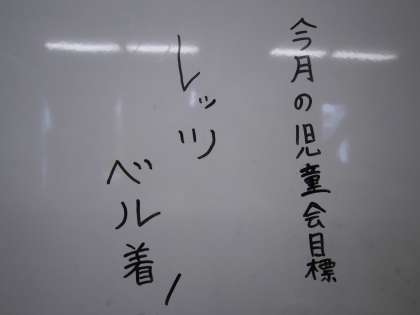 今月の児童会目標
レッツ
ベル着!